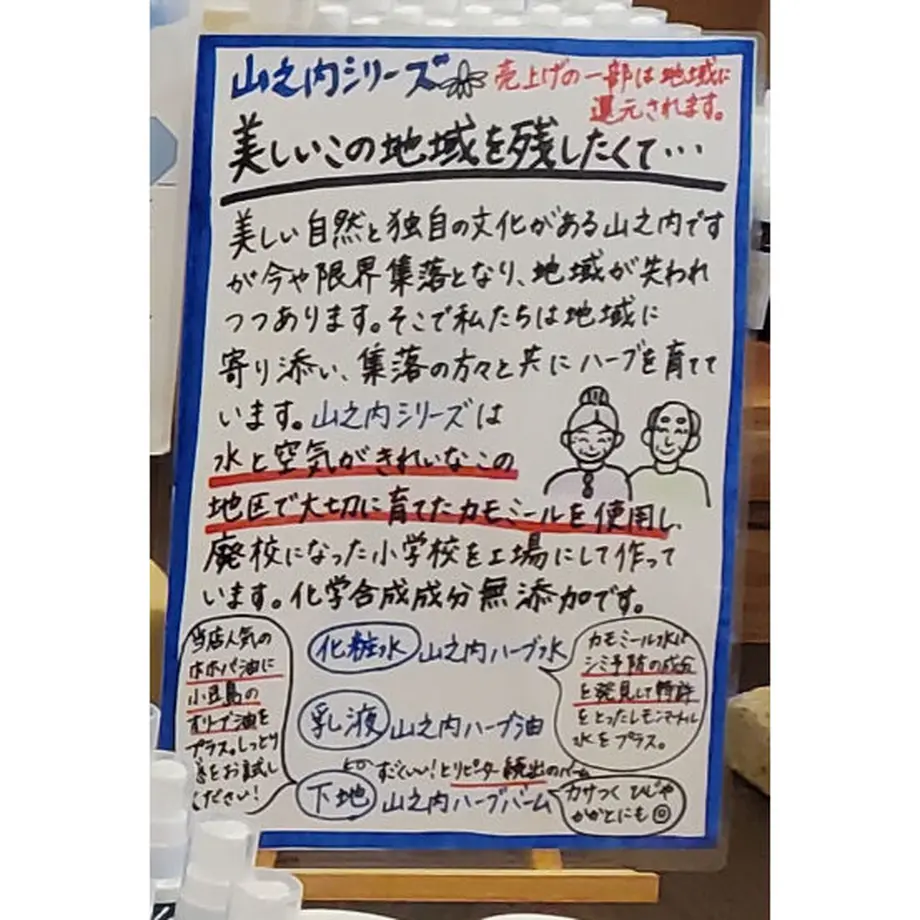 山之内シリーズ
売上げの一部は地域に
還元されます。
美しいこの地域を残したくて…
美しい自然と独自の文化がある山之内です
が今や限界集落となり、地域が失われ
つつあります。そこで私たちは地域に
寄り添い、集落の方々と共にハーブを育てて
います。山之内シリーズは
水と空気がきれいなこの
地区で大切に育てたカモミールを使用し、
廃校になった小学校を工場にして作って
います。化学合成成分無添加です。
当店人気の
ホホバ油に
小豆島の
オリーブ油を
プラス。しっとり
感をお試し
ください!
化粧水 山之内ハーブ水
カモミール水に
シミ予防の成分
を発見して特許
をとったレモンマートル
水をプラス。
乳液 山之内ハーブ油
すごくいい!とリピーター続出のバーム
下地 山之内ハーブバーム
カサつくひじや
かかとにも◎